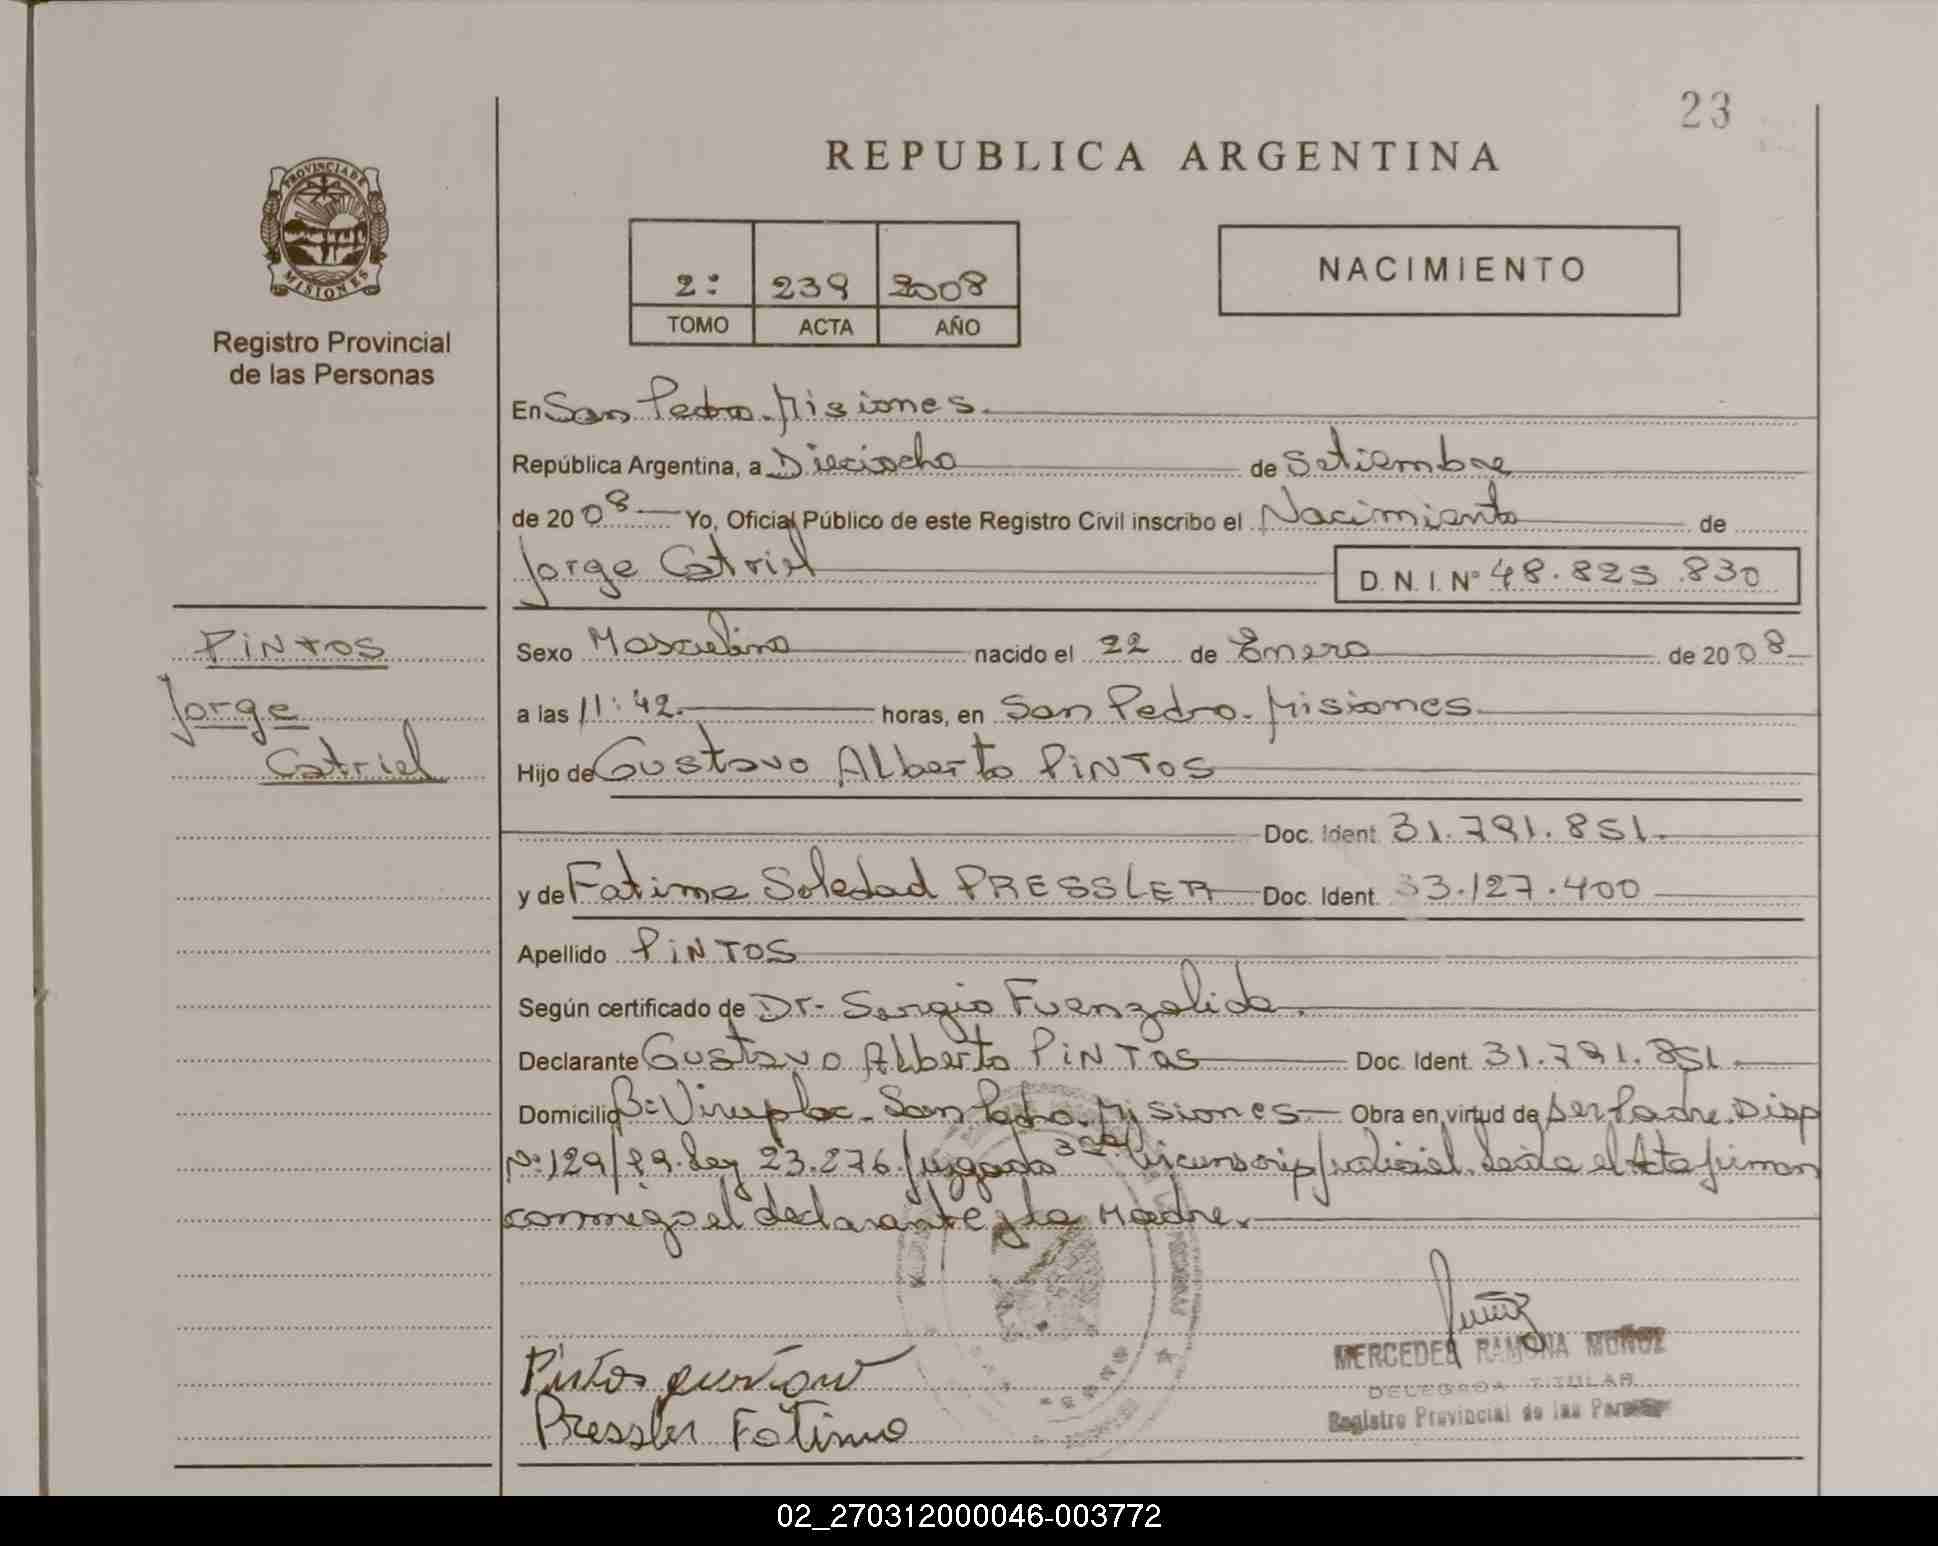 23
REPUBLICA ARGENTINA
PROVINCIA DE
MISIONES
Registro Provincial
de las Personas
2: 239 2008
TOMO ACTA AÑO
NACIMIENTO
En San Pedro. Misiones.
República Argentina, a Dieciocho de Setiembre
de 20 08 Yo, Oficial Público de este Registro Civil inscribo el Nacimiento de
Jorge Catriel D.N.I. Nº 48.825.830
PINTOS
Jorge
Catriel
Sexo Masculino nacido el 22 de Enero de 2008
a las 11:42. horas, en San Pedro. Misiones
Hijo de Gustavo Alberto PINTOS
Doc. Ident. 31.791.851.
y de Fatima Soledad PRESSLER Doc. Ident. 33.127.400
Apellido PINTOS
Según certificado de Dr. Sergio Fuenzalida.
Declarante Gustavo Alberto PINTOS Doc. Ident. 31.791.851.
Domicilio San Pedro. Misiones Obra en virtud de ser Padre. Disp
Nº 129/89. Ley 23.276. Juzgado 3ra judicial. el Acta firman
conmigo el declarante y la Madre.
Pintos
Pressler Fatima
MERCEDES RAMONA MUÑOZ
DELEGADA TITULAR
Registro Provincial de las Personas
02_270312000046-003772